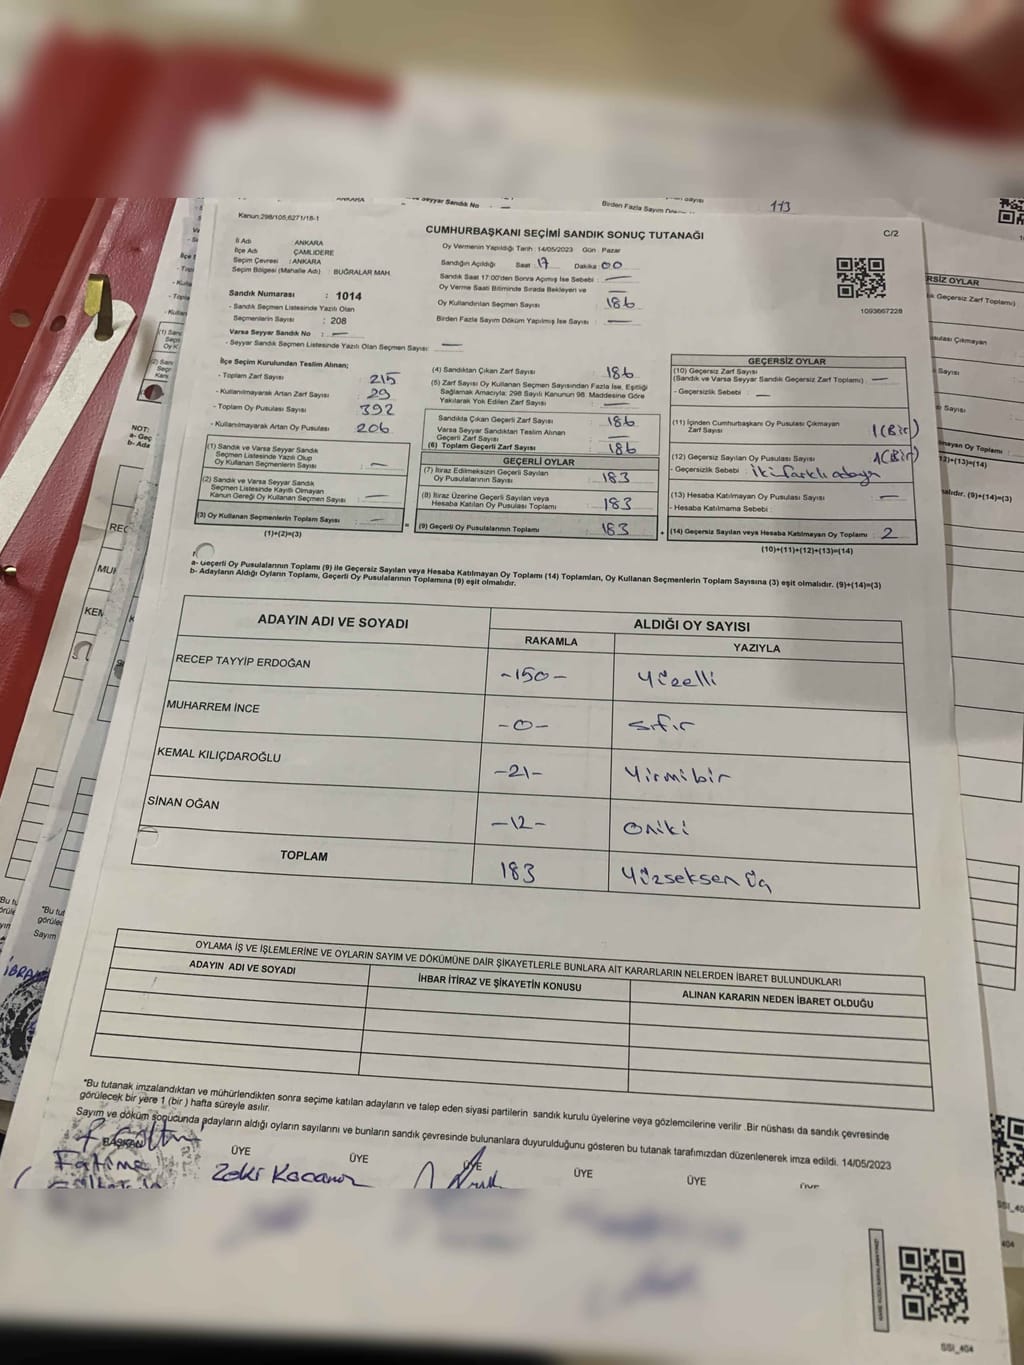 Kanun:298/105,6271/18-1
CUMHURBAŞKANI SEÇİMİ SANDIK SONUÇ TUTANAĞI
C/2
İl Adı ANKARA
İlçe Adı ÇAMLIDERE
Seçim Çevresi : ANKARA
Seçim Bölgesi (Mahalle Adı) : BUĞRALAR MAH.
Sandık Numarası : 1014
- Sandık Seçmen Listesinde Yazılı Olan
Seçmenlerin Sayısı : 208
Varsa Seyyar Sandık No : —
- Seyyar Sandık Seçmen Listesinde Yazılı Olan Seçmen Sayısı: —
Oy Vermenin Yapıldığı Tarih :14/05/2023 Gün : Pazar
Sandığın Açıldığı Saat 17 Dakika :00
Sandık Saat 17:00'den Sonra Açımış İse Sebebi : —
Oy Verme Saati Bitiminde Sırada Bekleyen ve : —
Oy Kullandırılan Seçmen Sayısı : 186
Birden Fazla Sayım Döküm Yapılmış İse Sayısı : —
1093667228
İlçe Seçim Kurulundan Teslim Alınan;
- Toplam Zarf Sayısı : 215
- Kullanılmayarak Artan Zarf Sayısı : 29
- Toplam Oy Pusulası Sayısı : 392
- Kullanılmayarak Artan Oy Pusulası : 206
(1) Sandık ve Varsa Seyyar Sandık
Seçmen Listesinde Yazılı Olup
Oy Kullanan Seçmenlerin Sayısı : —
(2) Sandık ve Varsa Seyyar Sandık
Seçmen Listesinde Kayıtlı Olmayan
Kanun Gereği Oy Kullanan Seçmen Sayısı : —
(3) Oy Kullanan Seçmenlerin Toplam Sayısı : —
(1)+(2)=(3)
(4) Sandıktan Çıkan Zarf Sayısı : 186
(5) Zarf Sayısı Oy Kullanan Seçmen Sayısından Fazla İse, Eşitliği
Sağlamak Amacıyla; 298 Sayılı Kanunun 98. Maddesine Göre
Yakılarak Yok Edilen Zarf Sayısı : —
Sandıkta Çıkan Geçerli Zarf Sayısı : 186
Varsa Seyyar Sandıktan Teslim Alınan
Geçerli Zarf Sayısı : —
(6) Toplam Geçerli Zarf Sayısı : 186
GEÇERLİ OYLAR
(7) İtiraz Edilmeksizin Geçerli Sayılan
Oy Pusulalarının Sayısı : 183
(8) İtiraz Üzerine Geçerli Sayılan veya
Hesaba Katılan Oy Pusulası Toplamı : 183
(9) Geçerli Oy Pusulalarının Toplamı : 183
GEÇERSİZ OYLAR
(10) Geçersiz Zarf Sayısı
(Sandık ve Varsa Seyyar Sandık Geçersiz Zarf Toplamı) : —
- Geçersizlik Sebebi : —
(11) İçinden Cumhurbaşkanı Oy Pusulası Çıkmayan
Zarf Sayısı : 1(Bir)
(12) Geçersiz Sayılan Oy Pusulası Sayısı : 1(Bir)
- Geçersizlik Sebebi : İki farklı adaya
(13) Hesaba Katılmayan Oy Pusulası Sayısı : —
- Hesaba Katılmama Sebebi :
(14) Geçersiz Sayılan veya Hesaba Katılmayan Oy Toplamı : 2
(10)+(11)+(12)+(13)=(14)
a- Geçerli Oy Pusulalarının Toplamı (9) ile Geçersiz Sayılan veya Hesaba Katılmayan Oy Toplamı (14) Toplamları, Oy Kullanan Seçmenlerin Toplam Sayısına (3) eşit olmalıdır. (9)+(14)=(3)
b- Adayların Aldığı Oyların Toplamı, Geçerli Oy Pusulalarının Toplamına (9) eşit olmalıdır.
ADAYIN ADI VE SOYADI ALDIĞI OY SAYISI
RAKAMLA YAZIYLA
RECEP TAYYİP ERDOĞAN -150- Yüzelli
MUHARREM İNCE -0- sıfır
KEMAL KILIÇDAROĞLU -21- Yirmibir
SİNAN OĞAN -12- oniki
TOPLAM 183 Yüzseksen üç
OYLAMA İŞ VE İŞLEMLERİNE VE OYLARIN SAYIM VE DÖKÜMÜNE DAİR ŞİKAYETLERLE BUNLARA AİT KARARLARIN NELERDEN İBARET BULUNDUKLARI
ADAYIN ADI VE SOYADI İHBAR İTİRAZ VE ŞİKAYETİN KONUSU ALINAN KARARIN NEDEN İBARET OLDUĞU
*Bu tutanak imzalandıktan ve mühürlendikten sonra seçime katılan adayların ve talep eden siyasi partilerin sandık kurulu üyelerine veya gözlemcilerine verilir .Bir nüshası da sandık çevresinde
görülecek bir yere 1 (bir ) hafta süreyle asılır.
Sayım ve döküm sonucunda adayların aldığı oyların sayılarını ve bunların sandık çevresinde bulunanlara duyurulduğunu gösteren bu tutanak tarafımızdan düzenlenerek imza edildi. 14/05/2023
BAŞKAN ÜYE ÜYE ÜYE ÜYE ÜYE
Fatima Zeki
SSI_404